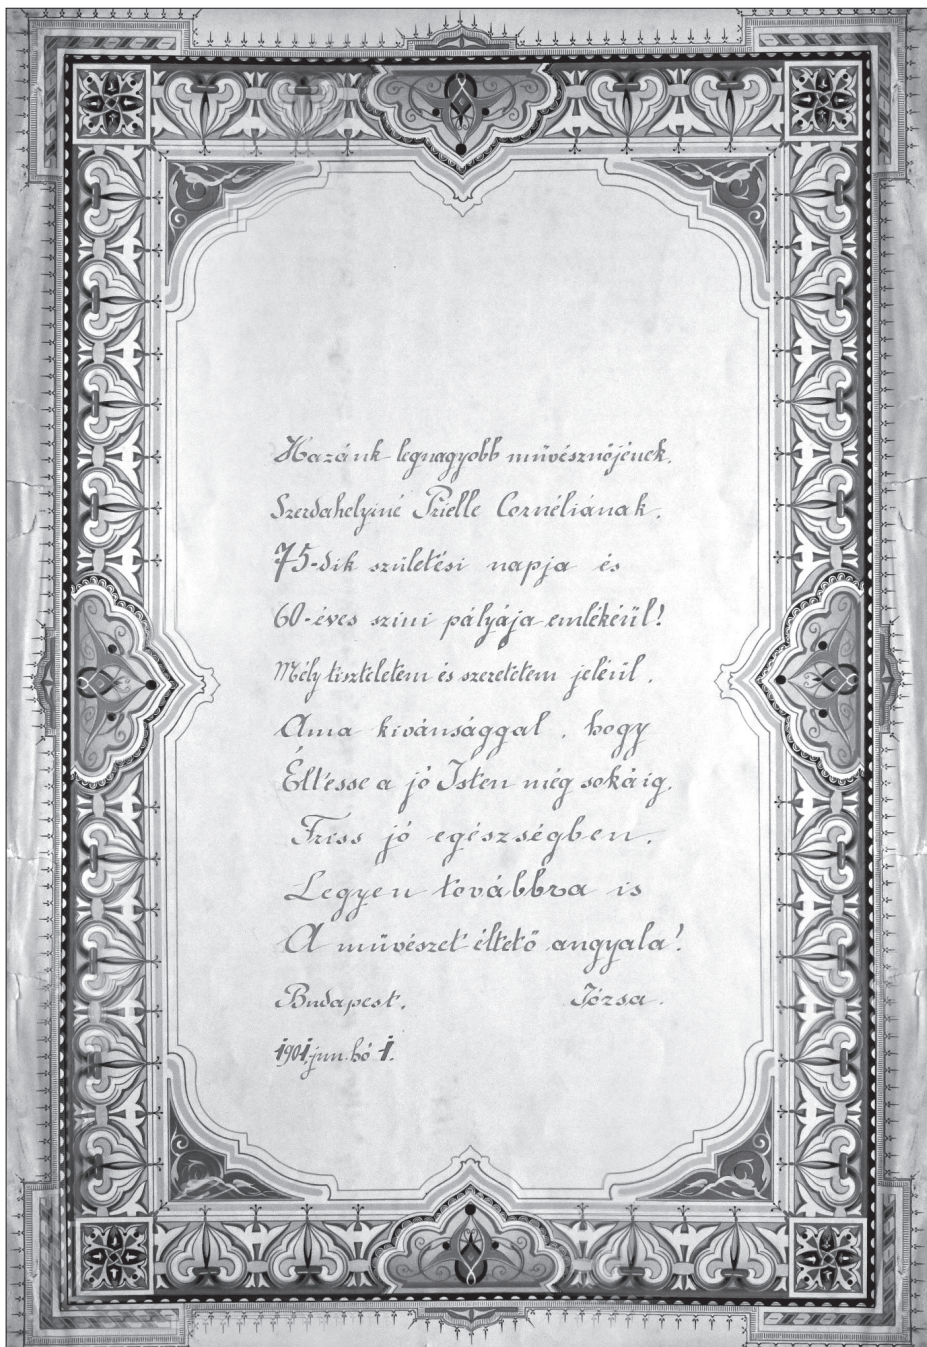 Hazánk legnagyobb művésznőjének,
Szerdahelyiné Prielle Cornéliának,
75-dik születési napja és
60-éves szini pályája emlékéül!
Mély tiszteletem és szeretetem jeléül,
Ama kivánsággal, hogy
Éltesse a jó Isten még sokáig,
Friss jó egészségben,
Legyen továbbra is
A művészet éltető angyala!
Budapest. Józsa.
1901. jun. hó 1.